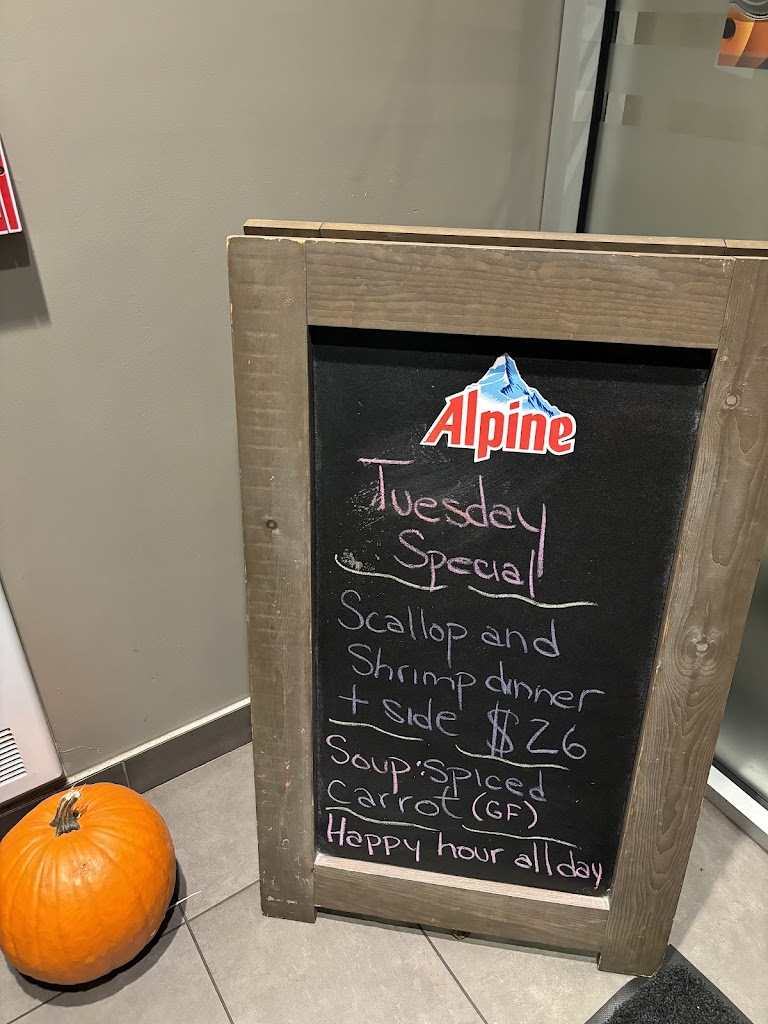 Alpine
Tuesday
Special
Scallop and
Shrimp dinner
+ side $26
Soup: spiced
carrot (GF)
Happy hour all day